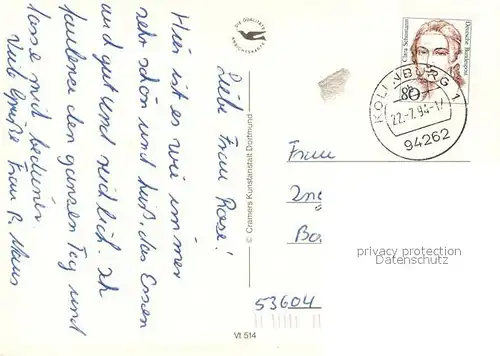 Liebe Frau Rose!
Hier ist es wie immer
sehr schön und heiß. Das Essen
auch gut und reichlich. Ich
faulenze den ganzen Tag und
lasse mich bedienen.
Viele Grüße Frau R.
DIE QUALITÄTS
ANSICHTSKARTE
© Cramers Kunstanstalt Dortmund
Vt 514
Deutsche Bundespost
Clara Schumann
80
KOLLNBURG 1
94262
Frau
53604
privacy protection
Datenschutz